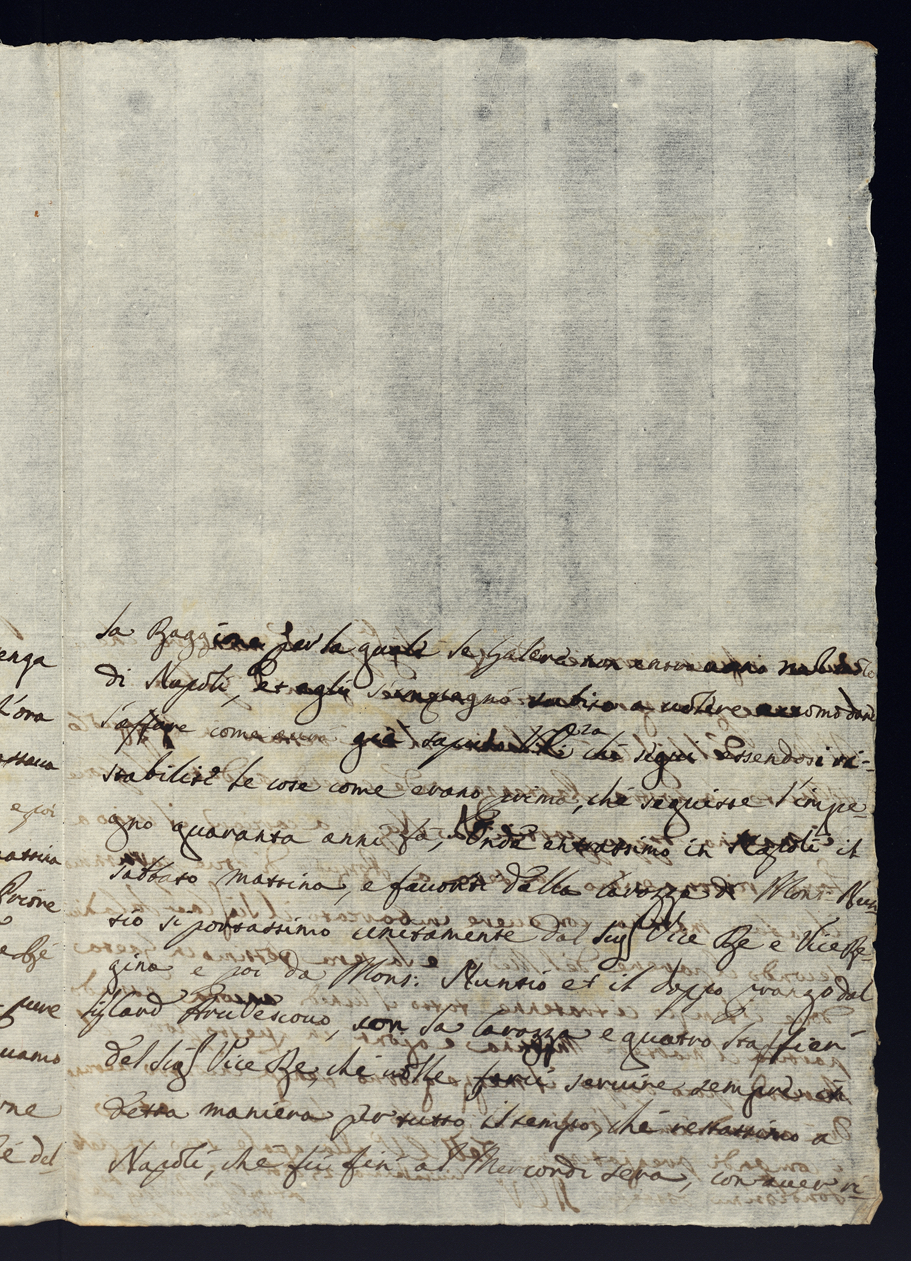 enga
t'ora
e poi
pure
quamo
one
é del
la Raggione per la quale le Galere non erano
di Napoli, et egli s'impegnò subito a volere accomodare
l'affare come già saputo che siguì essendosi ri-
stabilite le cose come erano prima, ché seguisse l'impe-
gno quaranta anni fa, Onde entrassimo in Napoli il
Sabbato mattina, e favoriti dalla Carozza di Mons: Nun
tio si portassimo unitamente dal Sig Vice Re e Vice Re-
gina e poi da Mons: Nuntio et il doppo pranzo dal
Arcivescovo, con la Carozza e quatro staffieri
del Sig Vice Re, ché volle farci servire sempre in
detta maniera per tutto il tempo, ché restassimo a
Napoli, che fu fin' al Mercordi sera, con aver ri-